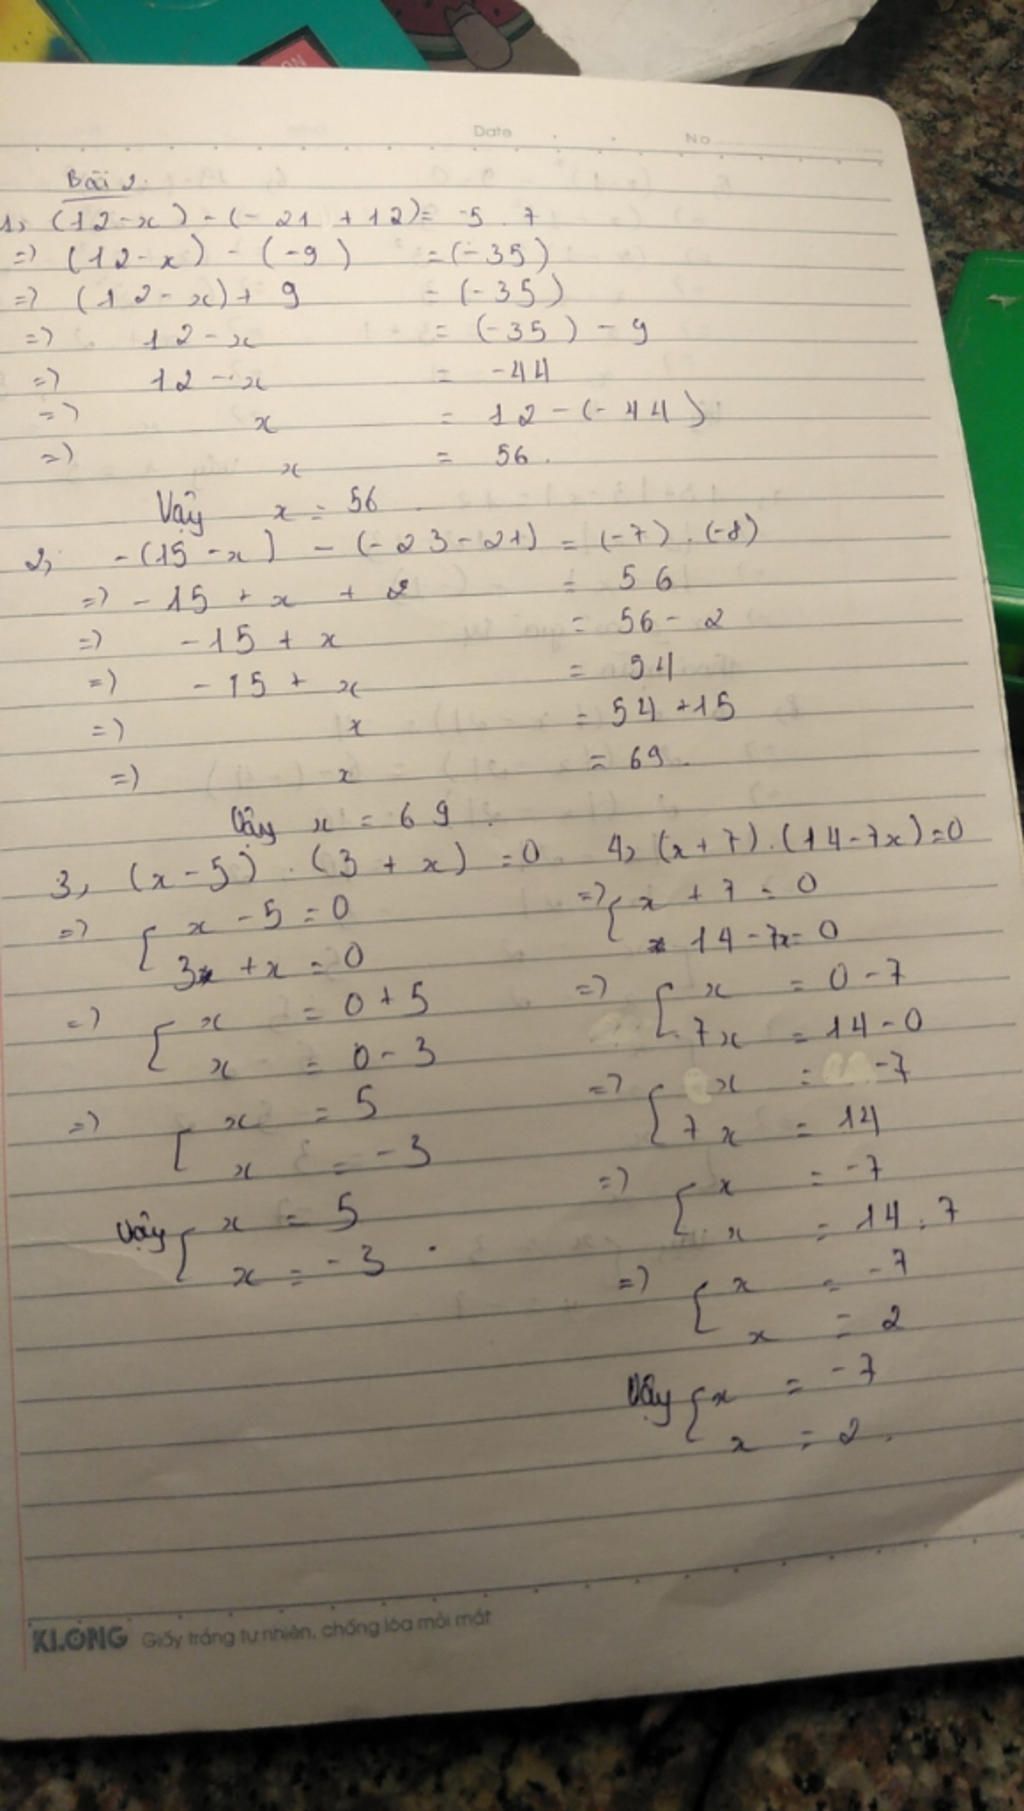 ON
Date
No
Bài 2.
1, (12-x) - (-21 + 12) = -5 . 7
=> (12-x) - (-9) = (-35)
=> (12-x) + 9 = (-35)
=> 12-x = (-35) - 9
=> 12-x = -44
=> x = 12 - (-44)
=> x = 56.
Vậy x = 56
2, -(15-x) - (-23-21) = (-7) . (-8)
=> -15 + x + 2 = 56
=> -15 + x = 56 - 2
=> -15 + x = 54
=> x = 54 + 15
=> x = 69.
Vậy x = 69.
3, (x-5) . (3 + x) = 0
=> { x - 5 = 0
3 + x = 0
=> { x = 0 + 5
x = 0 - 3
=> [ x = 5
x = -3
Vậy { x = 5
x = -3
4, (x+7) . (14-7x) = 0
=> { x + 7 = 0
14 - 7x = 0
=> { x = 0 - 7
7x = 14 - 0
=> { x = -7
7x = 14
=> { x = -7
x = 14 : 7
=> { x = -7
x = 2
Vậy { x = -7
x = 2.
KLONG Giấy trắng tự nhiên, chống lóa mỏi mắt